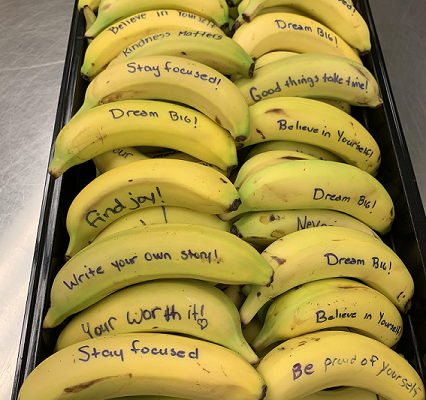 Believe in Yourself
Kindness Matters
Stay focused!
Dream BIG!
Find joy!
Write your own story!
Your worth it!♡
Stay focused
Dream BIG!
Good things take time!
Believe in Yourself!
Dream BIG!
Never
Dream BIG!
Believe in Yourself!
Be proud of yourself